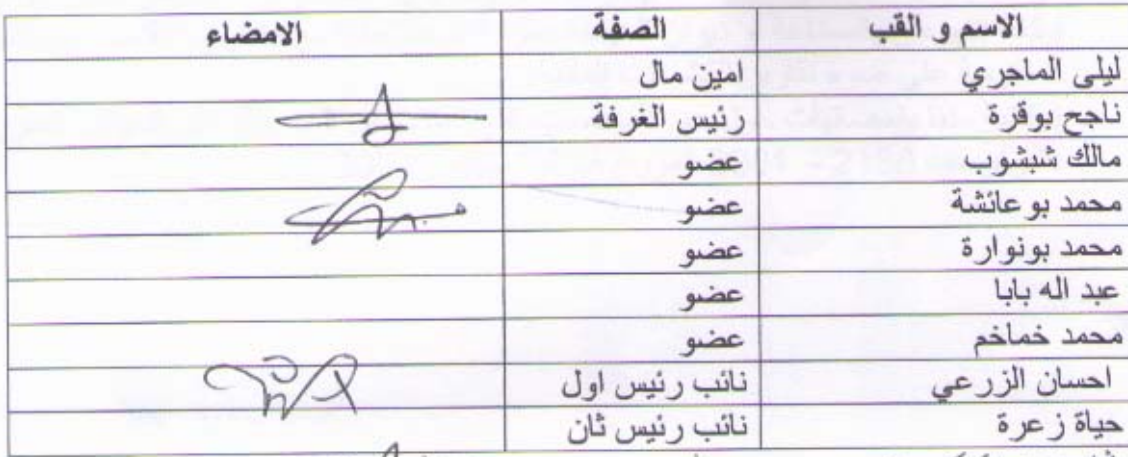 الاسم و القب الصفة الامضاء
ليلى الماجري امين مال
ناجح بوقرة رئيس الغرفة
مالك شبشوب عضو
محمد بوعائشة عضو
محمد بونوارة عضو
عبد اله بابا عضو
محمد خماخم عضو
احسان الزرعي نائب رئيس اول
حياة زعرة نائب رئيس ثان